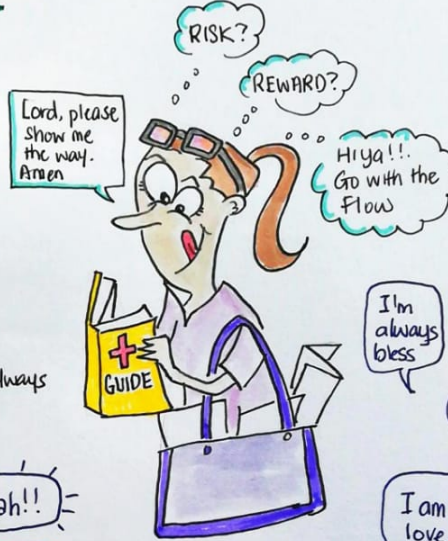 RISK?
REWARD?
Lord, please
show me
the way.
Amen
Hiya!!.
Go with the
Flow
I'm
always
bless
GUIDE
lways
ah!!
I am
love